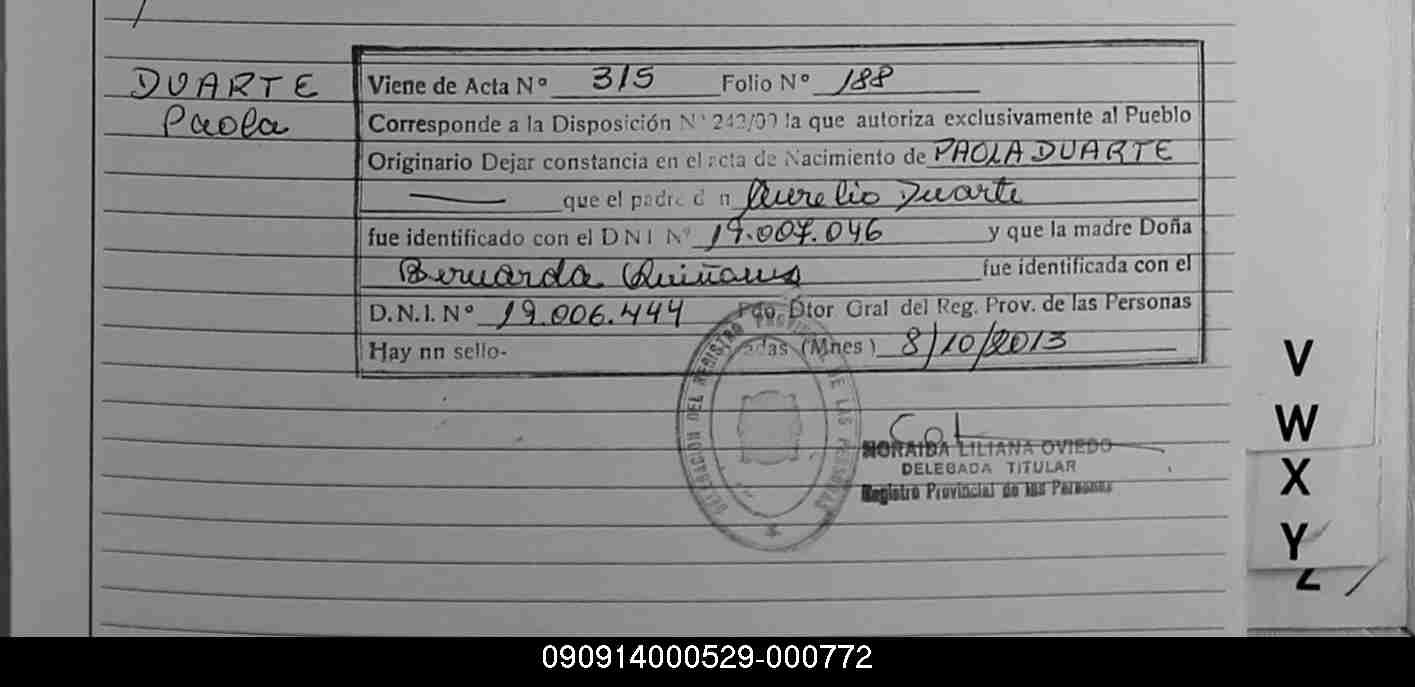 DUARTE
Paola
Viene de Acta Nº 315 Folio Nº 188
Corresponde a la Disposición Nº 242/00 la que autoriza exclusivamente al Pueblo
Originario Dejar constancia en el acta de Nacimiento de PAOLA DUARTE
que el padre d n Aurelio Duarte
fue identificado con el DNI Nº 19.007.046 y que la madre Doña
Bernarda fue identificada con el
D.N.I. Nº 19.006.444 Fdo. Dtor Gral del Reg. Prov. de las Personas
Hay nn sello- adas (Mnes) 8/10/2013
DELEGACION DEL REGISTRO PROVINCIAL DE LAS PERSONAS
NORAIDA LILIANA OVIEDO
DELEGADA TITULAR
Registro Provincial de las Personas
V
W
X
Y
Z
090914000529-000772